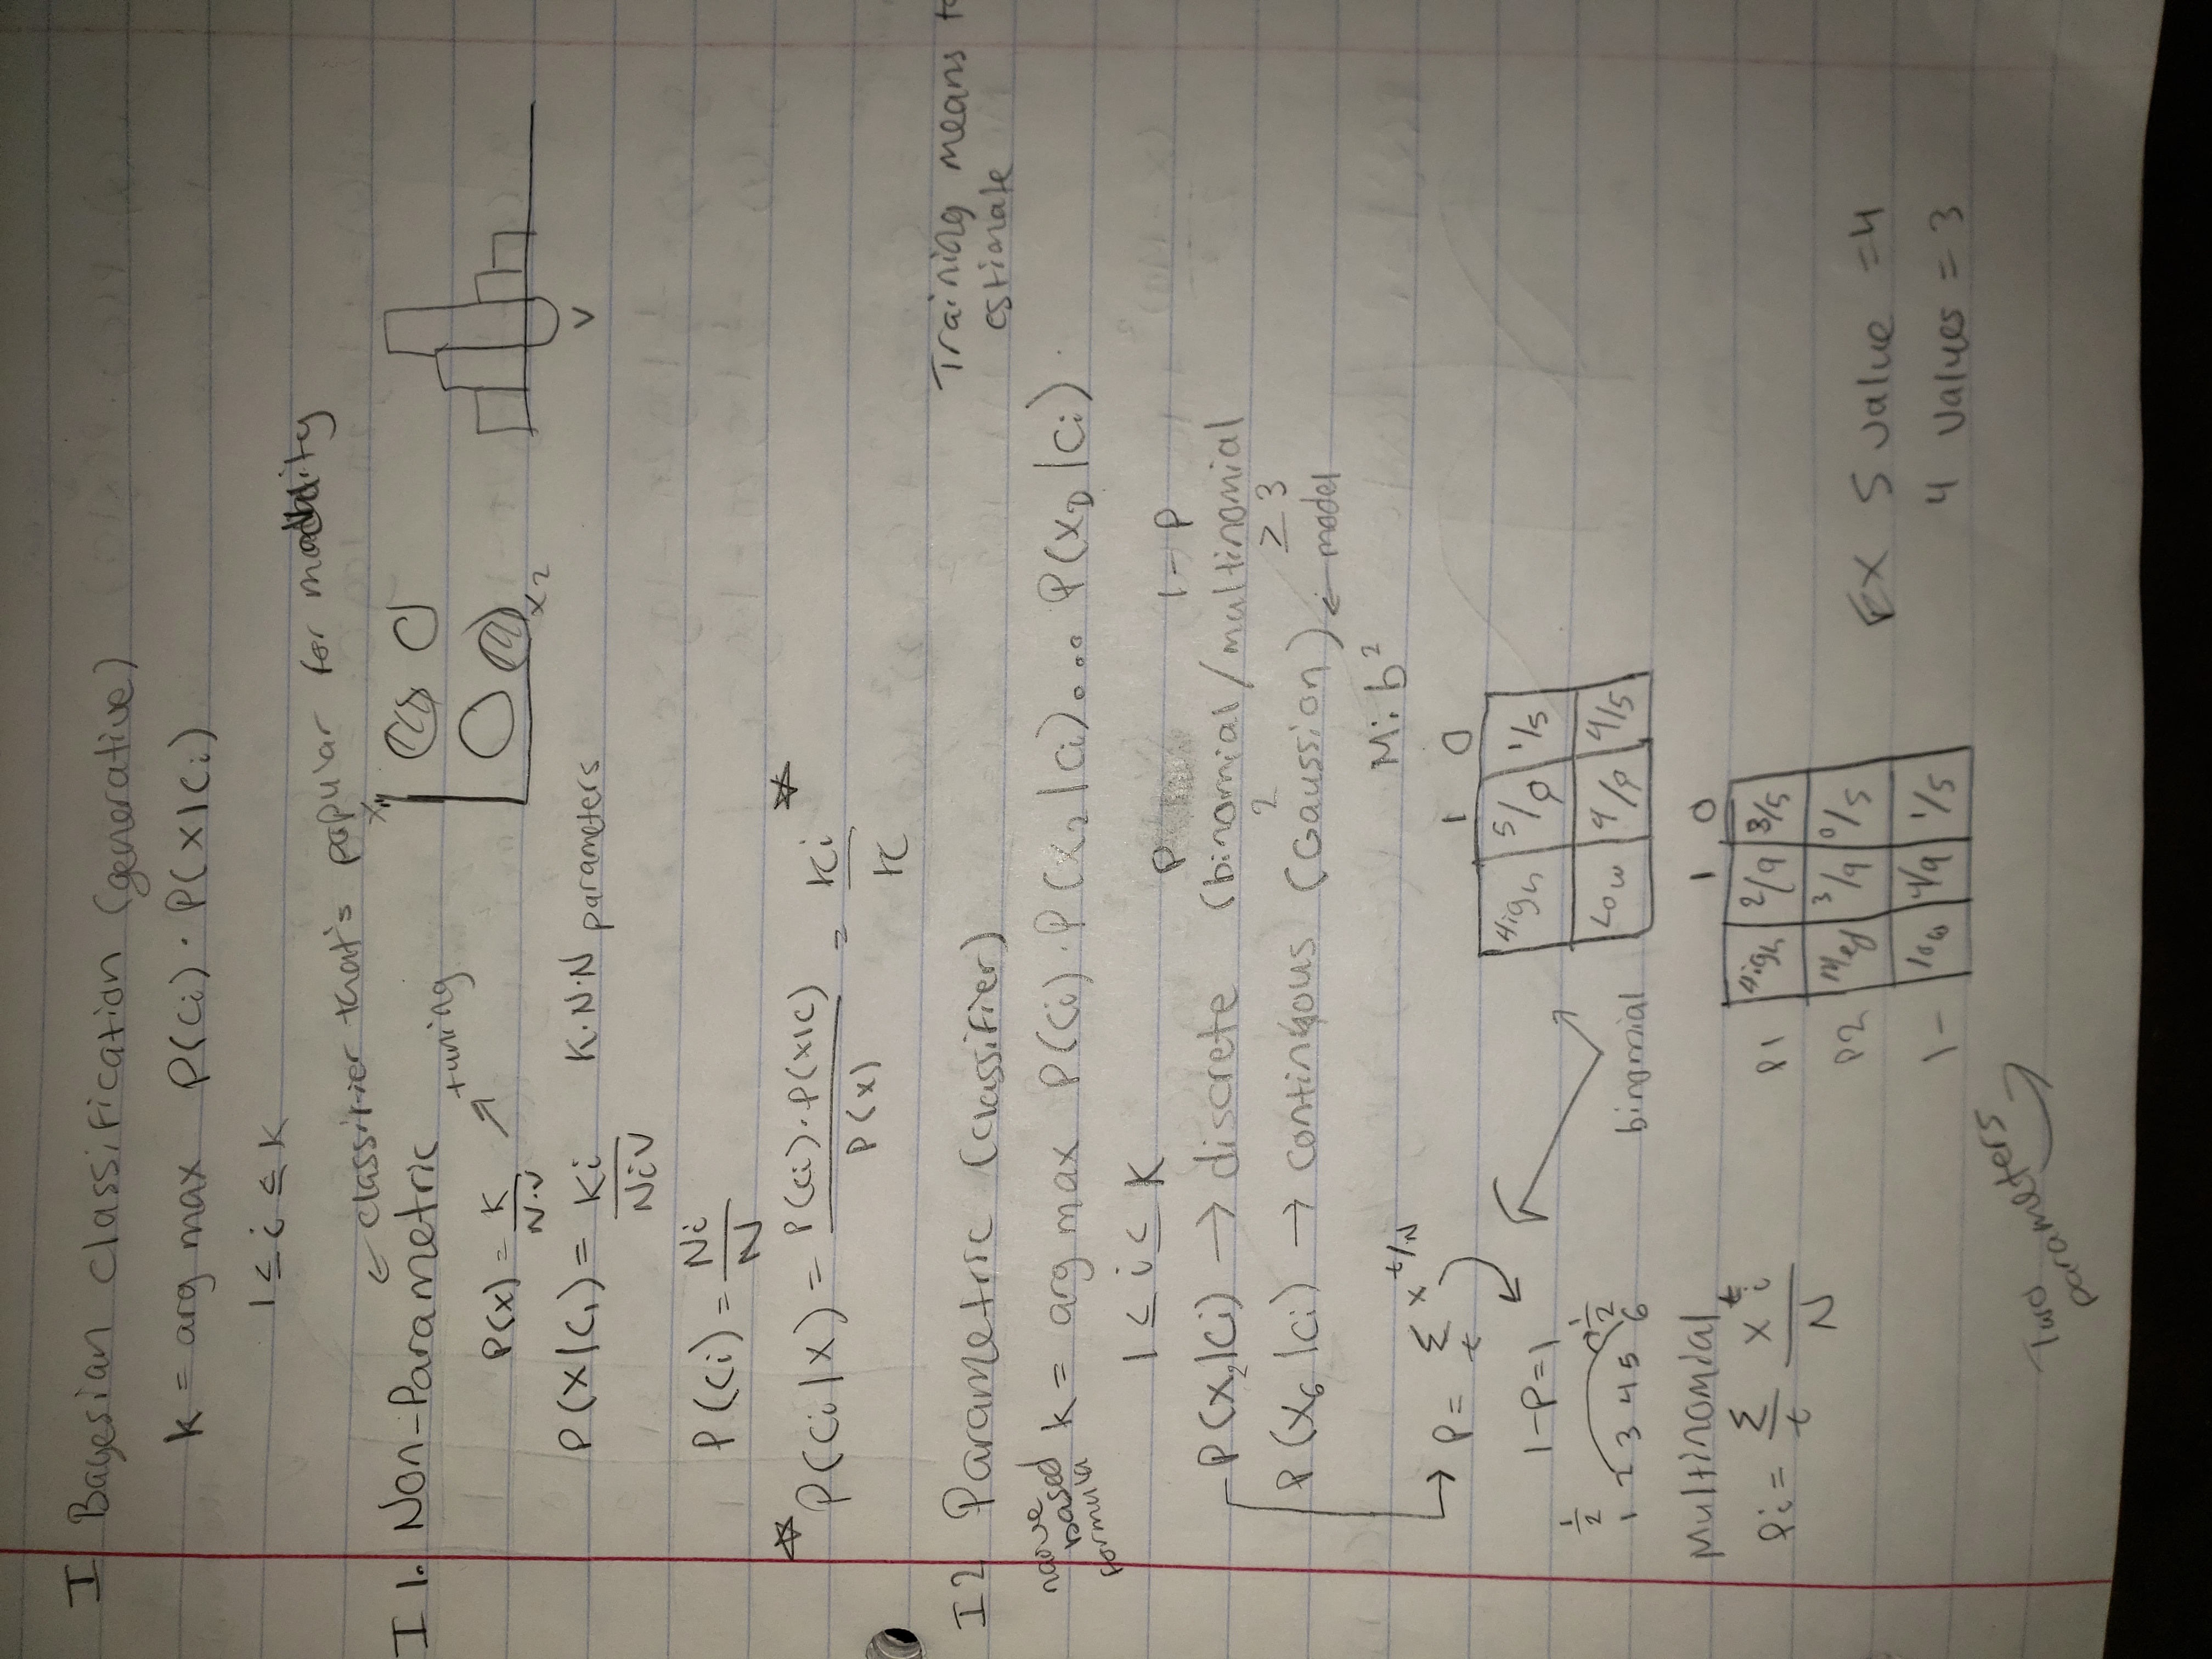 I Bayesian classification (generative)
k = arg max P(Ci) · P(X|Ci)
1 ≤ i ≤ K
← classifier that's popular for
I 1. Non-Parametric
P(x) = K / N·V ↗ tuning
X1
X2
V
P(X|C1) = Ki / NiV K·N·N parameters
P(Ci) = Ni / N
☆ P(Ci|X) = P(Ci)·P(X|C) / P(x) = Ki / K ☆
I2 Parametric (classifier)
Training means to
estimate
naive
based
formula
k = arg max P(Ci) · P(X2|Ci) ... P(XD|Ci)
1 ≤ i ≤ K
P 1-P
P(X2|Ci) → discrete (binomial/multinomial
2 ≥3
P(X6|Ci) → continuous (Gaussion) ← model
M: b²
→ P = Σt x^t/N
1-P=1
1/2 1/2
1 2 3 4 5 6
binomial
1 0
High 5/9 1/5
Low 4/9 4/5
Multinomial
Pi = Σt x^t i / N
1 0
P1 High 2/9 3/5
P2 Med 3/9 0/5
1- low 4/9 1/5
Two
parameters
EX 5 value = 4
4 values = 3